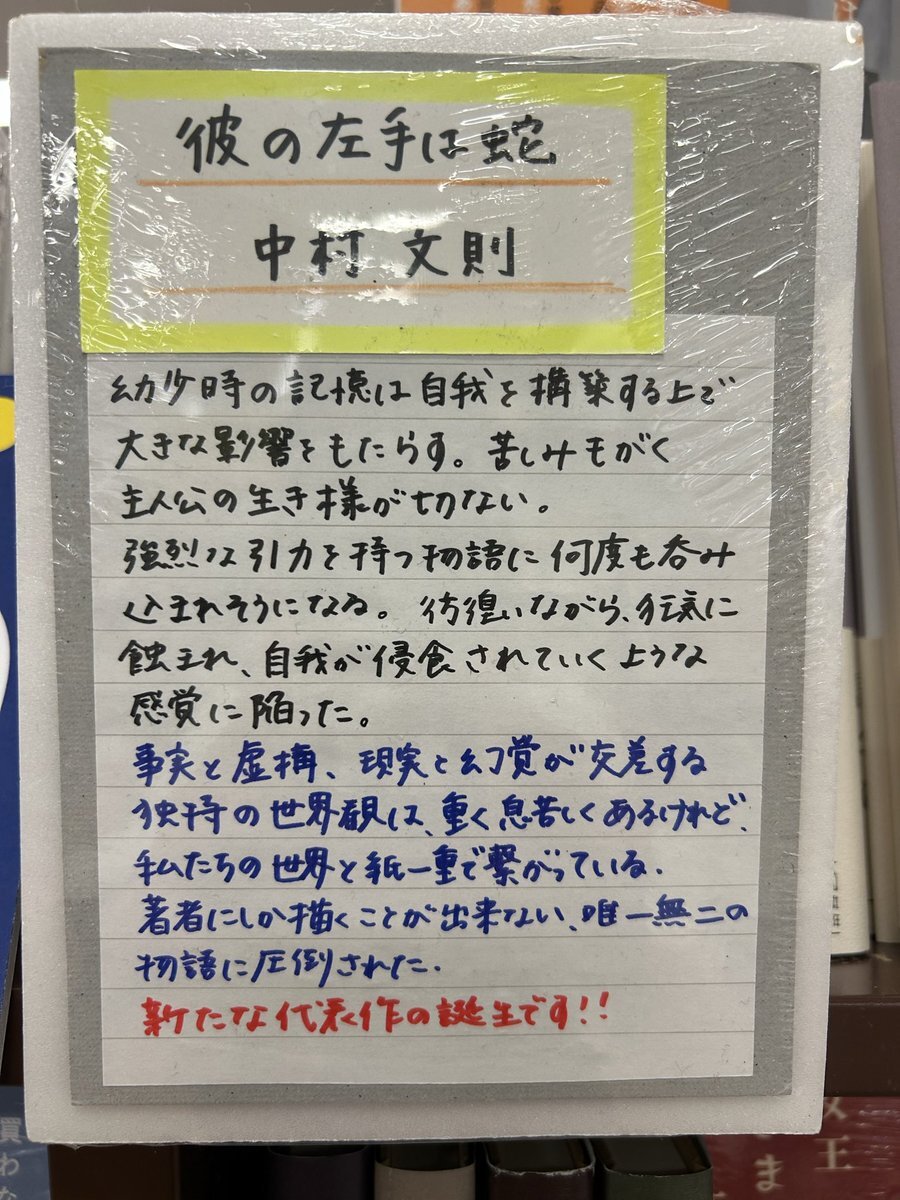 彼の左手は蛇
中村 文則
幼少時の記憶は自我を構築する上で
大きな影響をもたらす。苦しみもがく
主人公の生き様が切ない。
強烈な引力を持つ物語に何度も呑み
込まれそうになる。彷徨いながら、狂気に
蝕まれ、自我が侵食されていくような
感覚に陥った。
事実と虚構、現実と幻覚が交差する
独特の世界観は、重く息苦しくあるけれど、
私たちの世界と紙一重で繋がっている.
著者にしか描くことが出来ない、唯一無二の
物語に圧倒された.
新たな代表作の誕生です!!